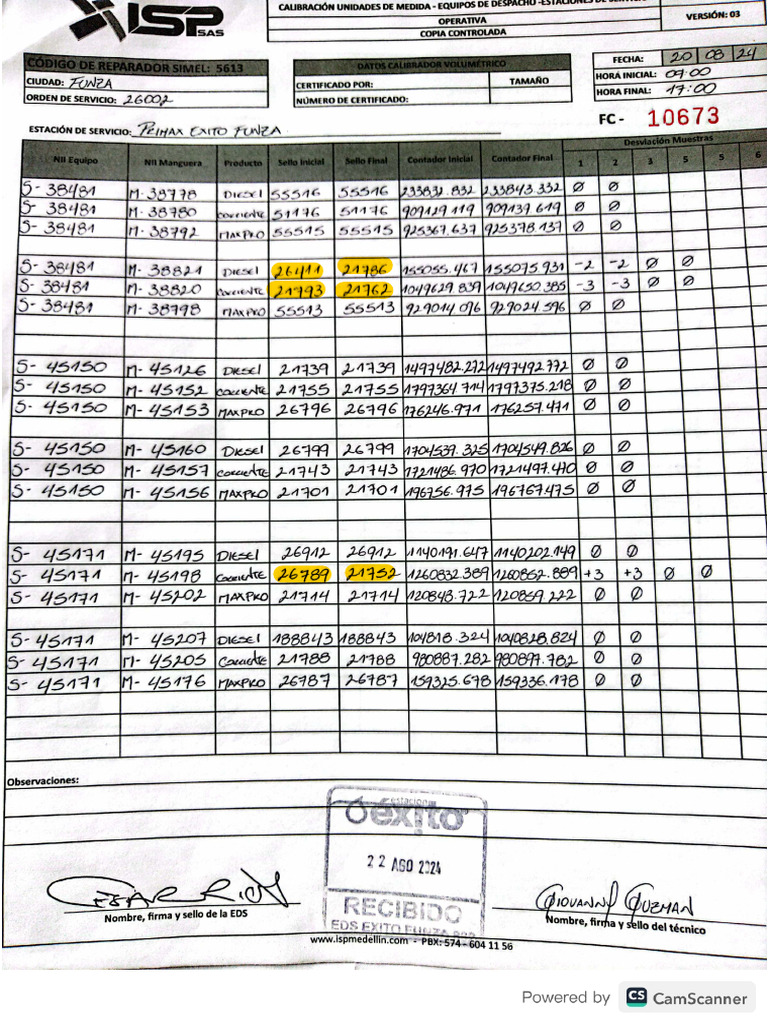 ISP SAS
CALIBRACIÓN UNIDADES DE MEDIDA - EQUIPOS DE DESPACHO -ESTACIONES DE SERVICIO
OPERATIVA
COPIA CONTROLADA
VERSIÓN: 03
CÓDIGO DE REPARADOR SIMEL: 5613
CIUDAD: FUNZA
ORDEN DE SERVICIO: 26002
DATOS CALIBRADOR VOLUMÉTRICO
CERTIFICADO POR: TAMAÑO
NÚMERO DE CERTIFICADO:
FECHA: 20 08 24
HORA INICIAL: 09:00
HORA FINAL: 17:00
FC - 10673
ESTACIÓN DE SERVICIO: PRIMAX EXITO FUNZA
NII Equipo NII Manguera Producto Sello Inicial Sello Final Contador Inicial Contador Final Desviación Muestras
1 2 3 5 5 6
S- 38481 M- 38778 DIESEL 55516 55516 233832.832 233843.332 Ø Ø
S- 38481 M- 38780 Corriente 51176 51176 909129.119 909139.619 Ø Ø
S- 38481 M- 38792 MAXPRO 55515 55515 925367.637 925378.137 Ø Ø
S- 38481 M- 38821 DIESEL 26411 21786 155055.467 155075.931 -2 -2 Ø Ø
S- 38481 M- 38820 Corriente 21793 21762 1049629.839 1049650.385 -3 -3 Ø Ø
S- 38481 M- 38798 MAXPRO 55513 55513 929014.096 929024.596 Ø Ø
S- 45150 M- 45126 DIESEL 21739 21739 1497482.272 1497492.772 Ø Ø
S- 45150 M- 45152 Corriente 21755 21755 1797364.714 1797375.218 Ø Ø
S- 45150 M- 45153 MAXPRO 26796 26796 176246.971 176257.471 Ø Ø
S- 45150 M- 45160 DIESEL 26799 26799 1704539.325 1704549.826 Ø Ø
S- 45150 M- 45157 Corriente 21743 21743 1721486.970 1721497.470 Ø Ø
S- 45150 M- 45156 MAXPRO 21701 21701 196756.975 196767.475 Ø Ø
S- 45171 M- 45195 DIESEL 26912 26912 1140191.647 1140202.149 Ø Ø
S- 45171 M- 45198 Corriente 26789 21752 1260832.389 1260852.889 +3 +3 Ø Ø
S- 45171 M- 45202 MAXPRO 21714 21714 120848.722 120859.222 Ø Ø
S- 45171 M- 45207 DIESEL 188843 188843 104818.324 1040828.824 Ø Ø
S- 45171 M- 45205 Corriente 21788 21788 980887.282 980897.782 Ø Ø
S- 45171 M- 45176 MAXPRO 26787 26787 159325.678 159336.178 Ø Ø
Observaciones:
estación
éxito
22 AGO 2024
RECIBIDO
EDS EXITO FUNZA
GIOVANNY GUZMAN
Nombre, firma y sello de la EDS
Nombre, firma y sello del técnico
www.ispmedellin.com - PBX: 574 - 604 11 56
Powered by CS CamScanner